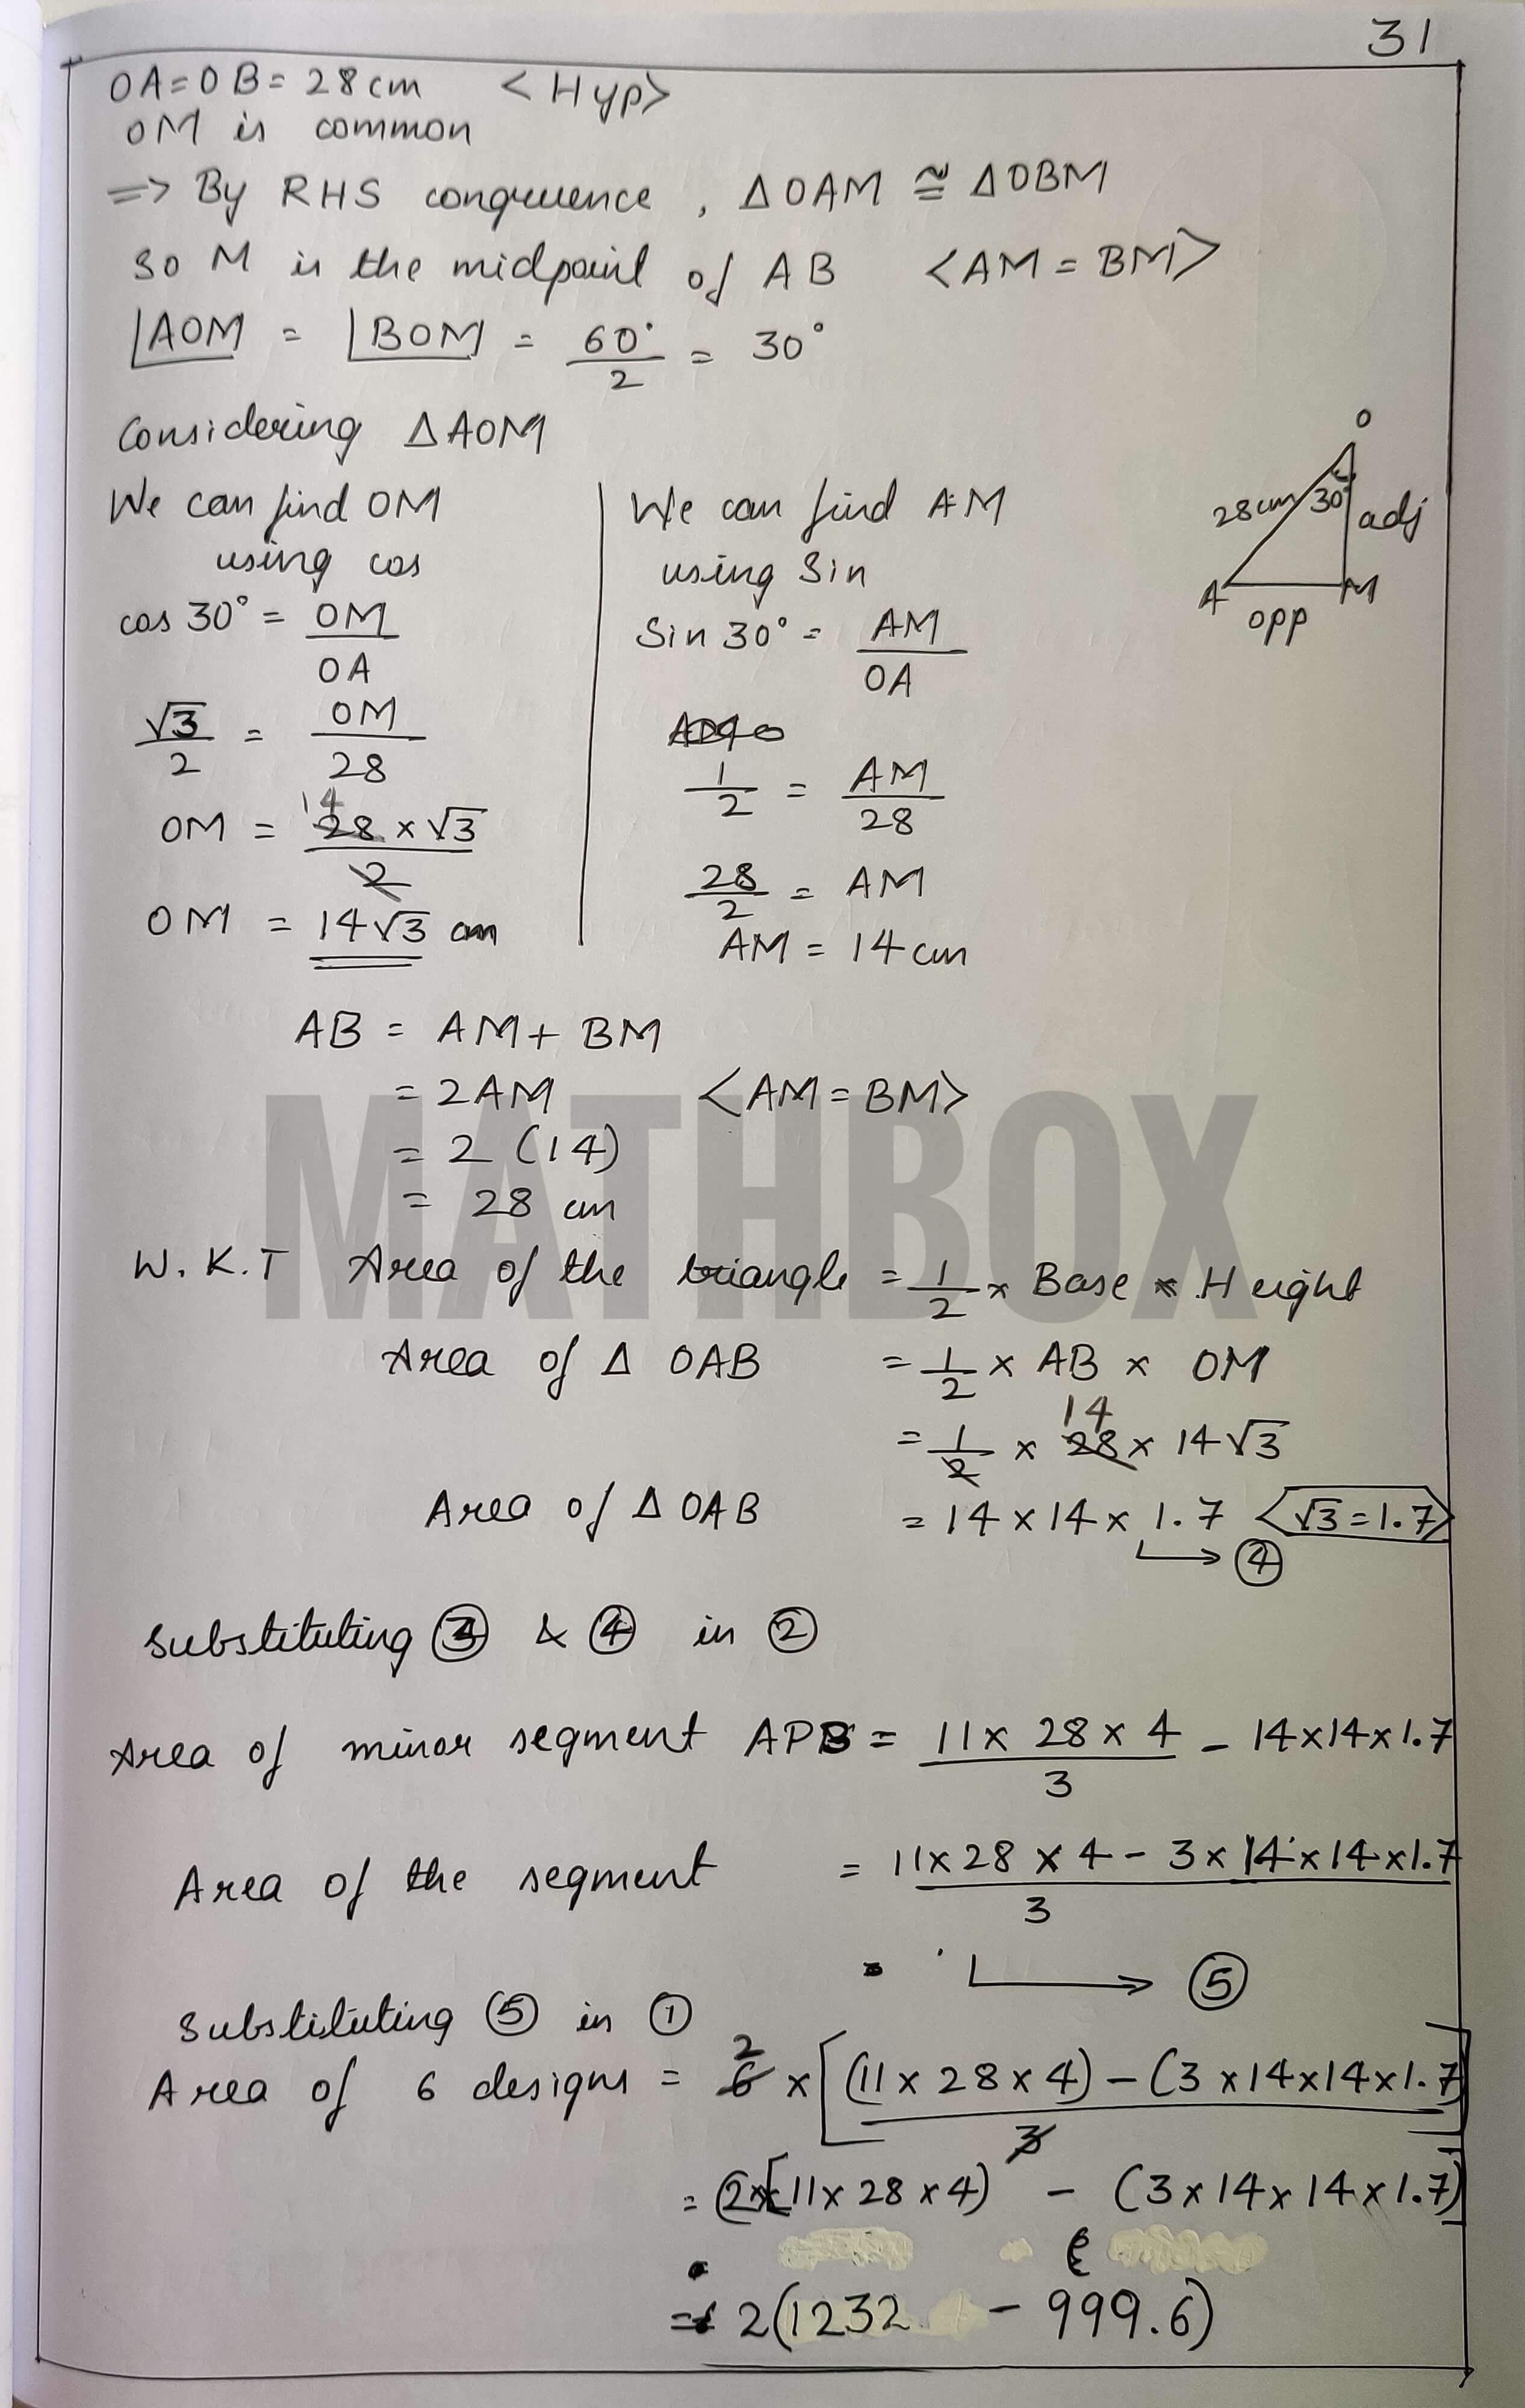 31
OA = OB = 28 cm <Hyp>
OM is common
=> By RHS congruence, ΔOAM ≅ ΔOBM
So M is the midpoint of AB <AM = BM>
∠AOM = ∠BOM = 60°/2 = 30°
Considering ΔAOM
O
28cm 30° adj
A M
opp
We can find OM
using cos
cos 30° = OM/OA
√3/2 = OM/28
OM = 28 × √3/2
14
OM = 14√3 cm
We can find AM
using Sin
Sin 30° = AM/OA
1/2 = AM/28
28/2 = AM
AM = 14 cm
AB = AM + BM
= 2AM <AM = BM>
= 2 (14)
= 28 cm
MATHBOX
W.K.T Area of the triangle = 1/2 × Base × Height
Area of Δ OAB = 1/2 × AB × OM
14
= 1/2 × 28 × 14√3
Area of Δ OAB = 14 × 14 × 1.7 <√3 = 1.7>
→ ④
Substituting ③ & ④ in ②
Area of minor segment APB = 11 × 28 × 4/3 - 14×14×1.7
Area of the segment = 11×28×4 - 3×14×14×1.7/3
= → ⑤
Substituting ⑤ in ①
2
Area of 6 designs = 6 × [(11 × 28 × 4) - (3 ×14×14×1.7)/3]
= 2×[(11× 28 ×4) - (3×14×14×1.7)]
= 2(1232 - 999.6)